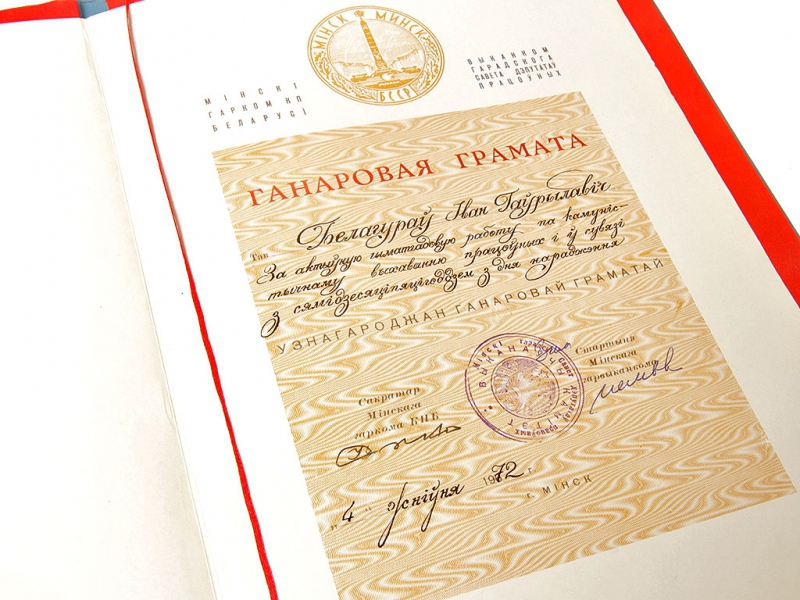 МІНСКІ
ГАРКОМ КП
БЕЛАРУСІ
МІНСК МИНСК
БССР
ВЫКАНКОМ
ГАРАДСКОГА
САВЕТА ДЭПУТАТАЎ
ПРАЦОЎНЫХ
ГАНАРОВАЯ ГРАМАТА
Тав Белагураў Іван Гаўрылавіч
За актыўную шматгадовую работу па камуніс-
тычнаму выхаванню працоўных і ў сувязі
з сямідзесяціпяцігоддзем з дня нараджэння
УЗНАГАРОДЖАН ГАНАРОВАЙ ГРАМАТАЙ
Сакратар
Мінскага
гаркома КПБ
Мінскі
ВЫКАНАЎЧЫ КАМІТЭТ
Старшыня
Мінскага
гарвыканкома
„4" жніўня 1972 г.
г. МІНСК